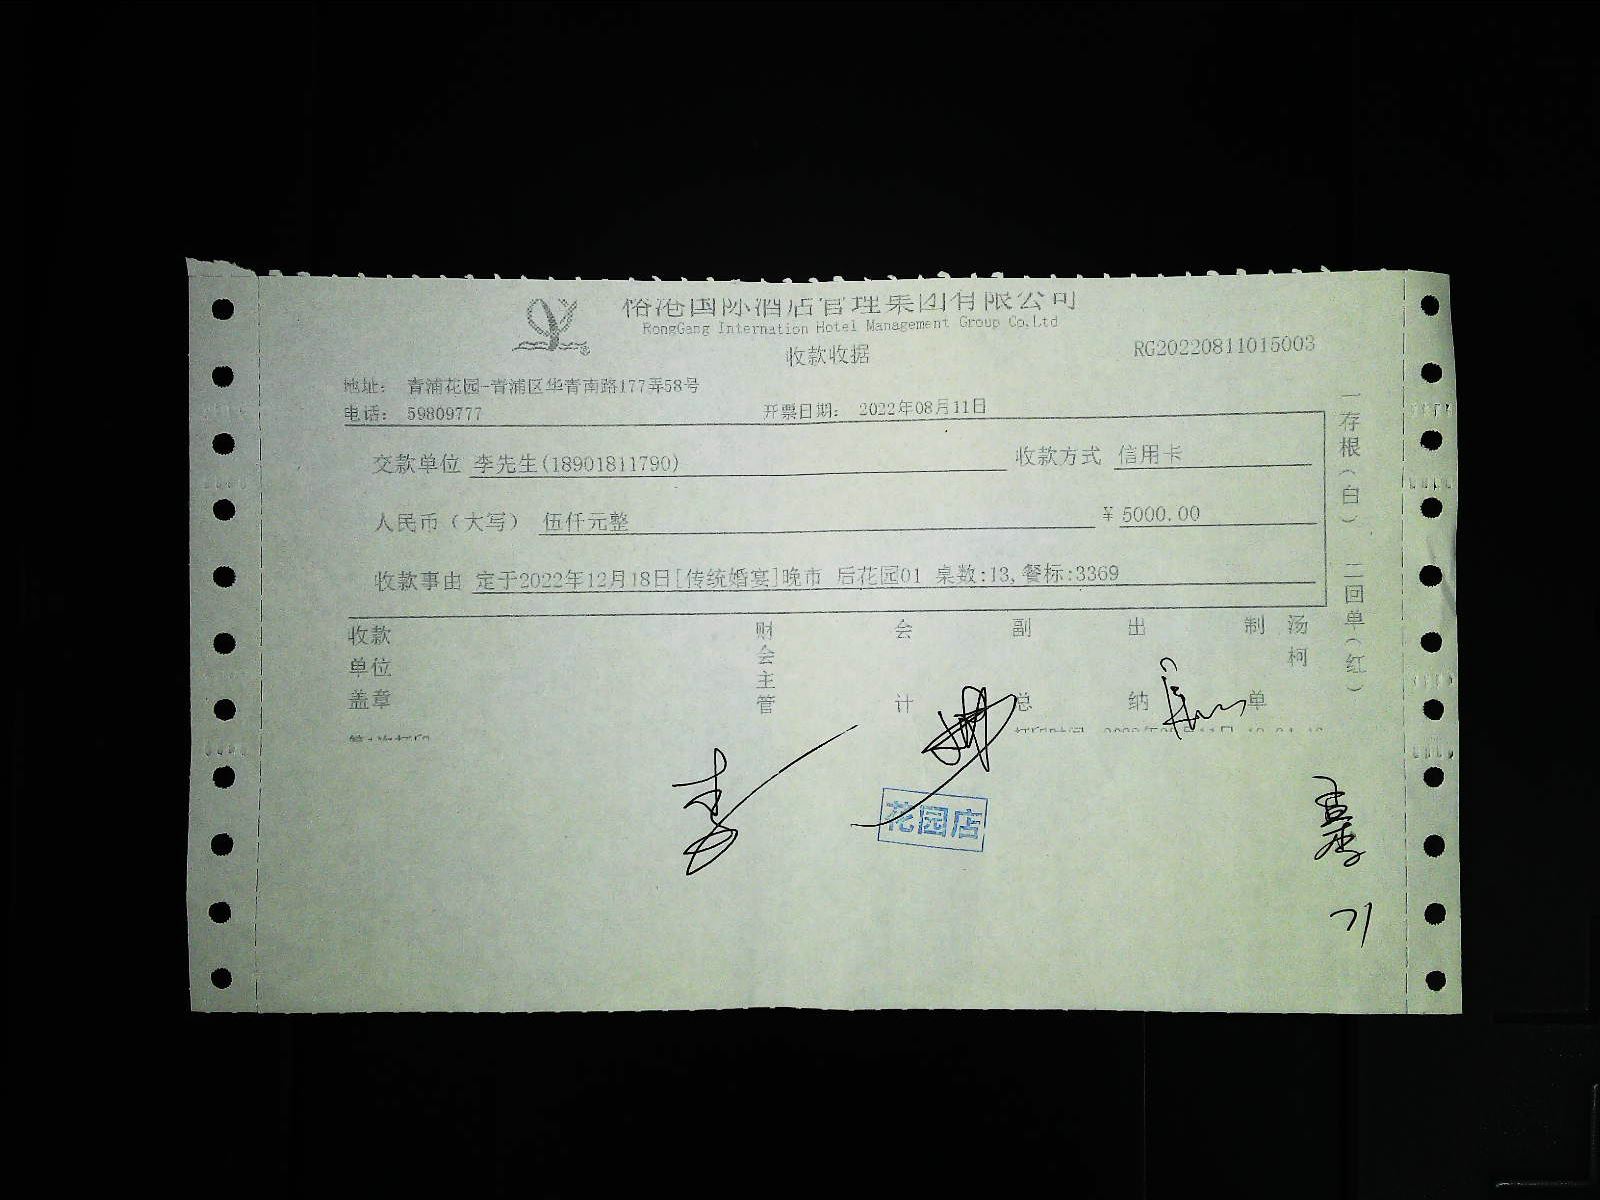 港国际酒店管理集团有限公司
RongGang Internation Hotel Management Group Co.Ltd
收款收据
RG20220811015003
地址： 青浦花园-青浦区华青南路177弄58号
电话： 59809777 开票日期： 2022年08月11日
交款单位 李先生(18901811790) 收款方式 信用卡
人民币（大写） 伍仟元整 ¥ 5000.00
收款事由 定于2022年12月18日[传统婚宴]晚市 后花园01 桌数:13,餐标:3369
收款单位盖章 财会主管 会计 副总 出纳 制单 汤柯
一存根（白） 二回单（红）
花园店